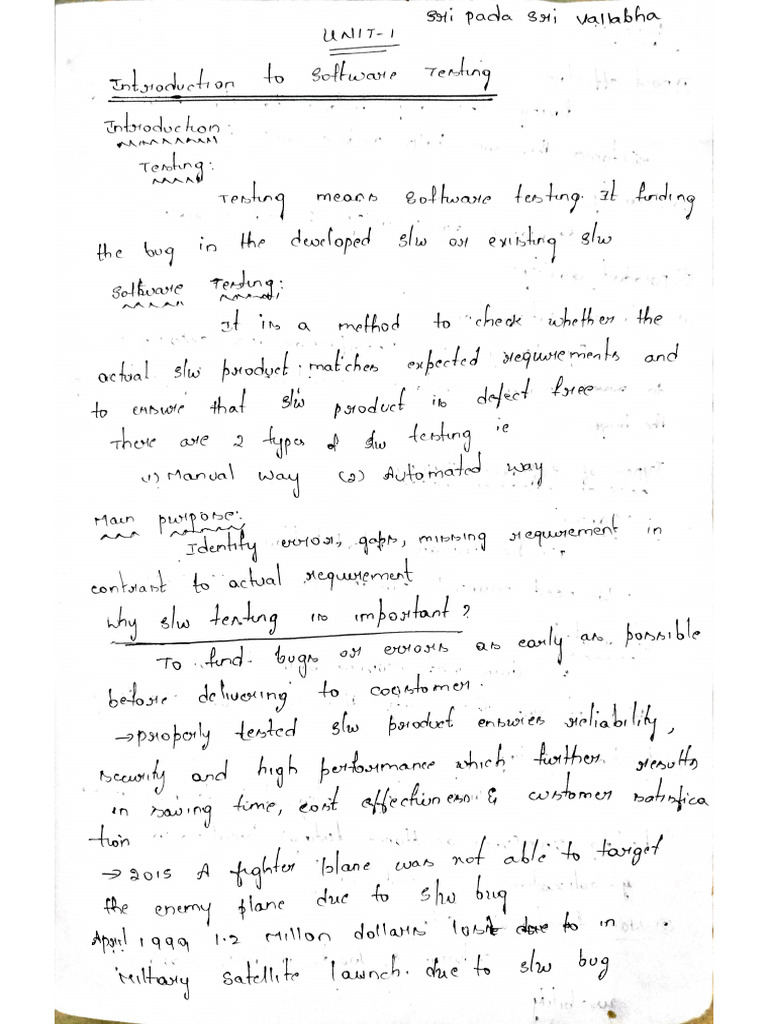 Sri pada Sri Vallabha
UNIT-1
Introduction to Software Testing
Introduction:
Testing:
Testing means Software testing. It finding
the bug in the developed s/w or existing s/w
Software Testing:
It is a method to check whether the
actual s/w product matches expected requirements and
to ensure that s/w product is defect free
There are 2 types of s/w testing ie
(1) Manual Way (2) Automated way
Main purpose:
Identify errors, gaps, missing requirement in
contrast to actual requirement
Why s/w testing is important?
To find bugs or errors as early as possible
before delivering to coustomer.
→properly tested s/w product ensures reliability,
security and high performance which further results
in saving time, cost effectiveness & customer satisfica
tion
→ 2015 A fighter plane was not able to target
the enemy plane due to s/w bug
April 1999 1.2 Millon dollars lost in
Miltary satellite launch. due to s/w bug